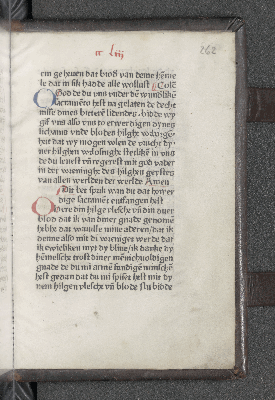 cc liij
262
em geheuen dat brod van deme hēme
le dat in sik hadde alle wollust Colc̄
O God de du vns vnder dē wundlikē
sacramēto hest na gelaten de decht
nisse dines bitterē lidendes bidde wy
gyf vns also vns to erwerdigen dynes
lichams vnde blodes hilghe
heit dat wy mogen volen de vrucht dy
ner hilghen vorlosinghe stedliken in vns
de du leuest vn̄ regerest mit god vader
in der eninghe des hilghen geystes
van allen werlden der werlde Amen
Dit bet sprik wan du dat hoch wer
dige sacramēt entfangen hest
Here din hilge vlesch vn̄ din duer
blod dat ik van diner gnade genomē
hebbe dat wasche mine aderen dat ik
denne also mit di voreniget werde dat
ik ewichliken myt dy bliue ik danke dy
hēmelsche trost diner mēnichuoldigen
gnade de du mi arme sundige minschē
hest gedan dat du mi spiset hest mit dy
nem hilgen vlesche vn̄ blode su bidde